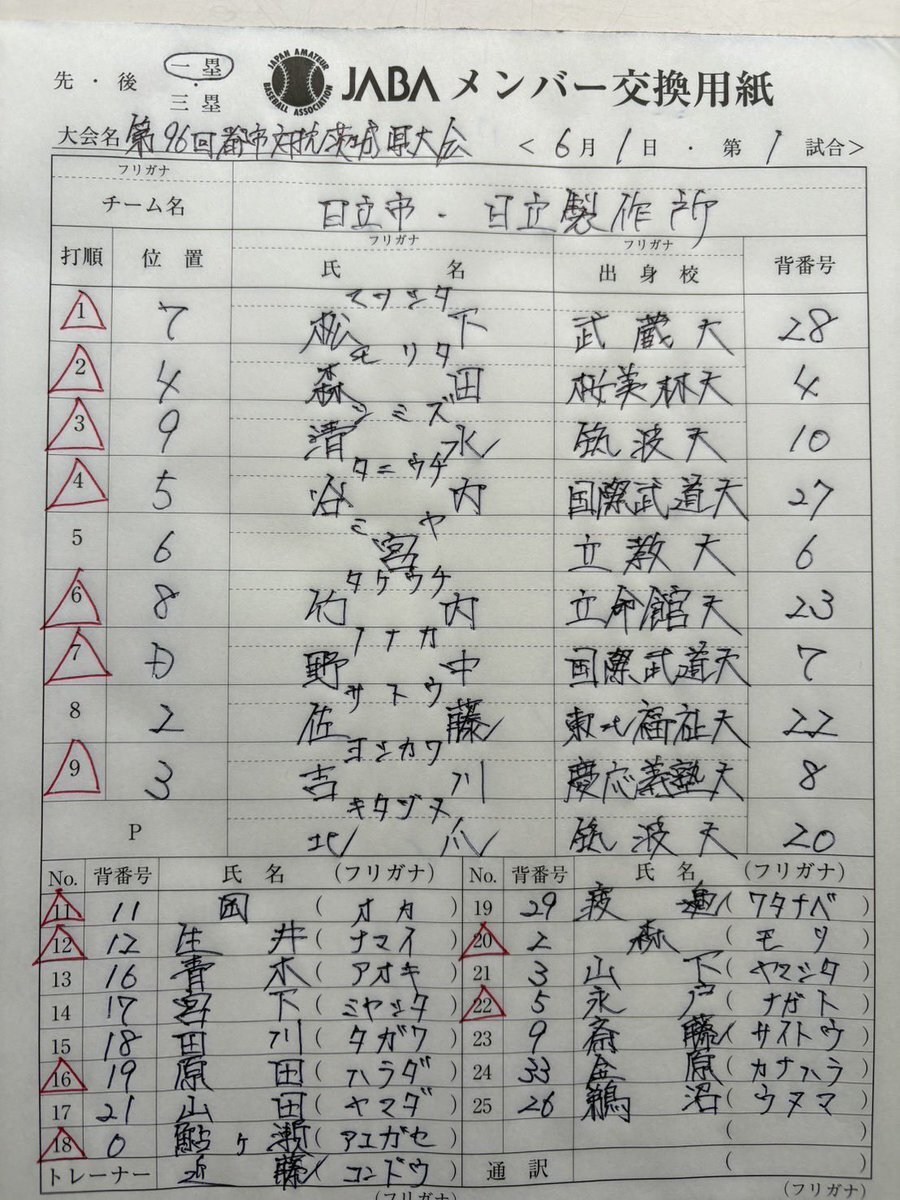 先・後 一塁・三塁 JAPAN AMATEUR BASEBALL ASSOCIATION JABA メンバー交換用紙
大会名 第96回都市対抗茨城県大会 <6月1日・第1試合>
フリガナ
チーム名 日立市・日立製作所
打順 位置 フリガナ 氏名 フリガナ 出身校 背番号
マツシタ
1 7 松下 武蔵大 28
モリタ
2 4 森田 桜美林大 4
シミズ
3 9 清水 筑波大 10
タニウチ
4 5 谷内 国際武道大 27
ミヤ
5 6 宮 立教大 6
タケウチ
6 8 竹内 立命館大 23
ノナカ
7 D 野中 国際武道大 7
サトウ
8 2 佐藤 東北福祉大 22
ヨシカワ
9 3 吉川 慶応義塾大 8
キタヅメ
P 北爪 筑波大 20
No. 背番号 氏名 (フリガナ) No. 背番号 氏名 (フリガナ)
11 11 岡 (オカ) 19 29 渡邉 (ワタナベ)
12 12 生井 (ナマイ) 20 2 森 (モリ)
13 16 青木 (アオキ) 21 3 山下 (ヤマシタ)
14 17 宮下 (ミヤシタ) 22 5 永戸 (ナガト)
15 18 田川 (タガワ) 23 9 斎藤 (サイトウ)
16 19 原田 (ハラダ) 24 33 金原 (カナハラ)
17 21 山田 (ヤマダ) 25 26 鵜沼 (ウヌマ)
18 0 鮎ヶ瀬 (アユガセ) ( )
トレーナー 近藤 (コンドウ) 通訳 ( )
(フリガナ) (フリガナ)